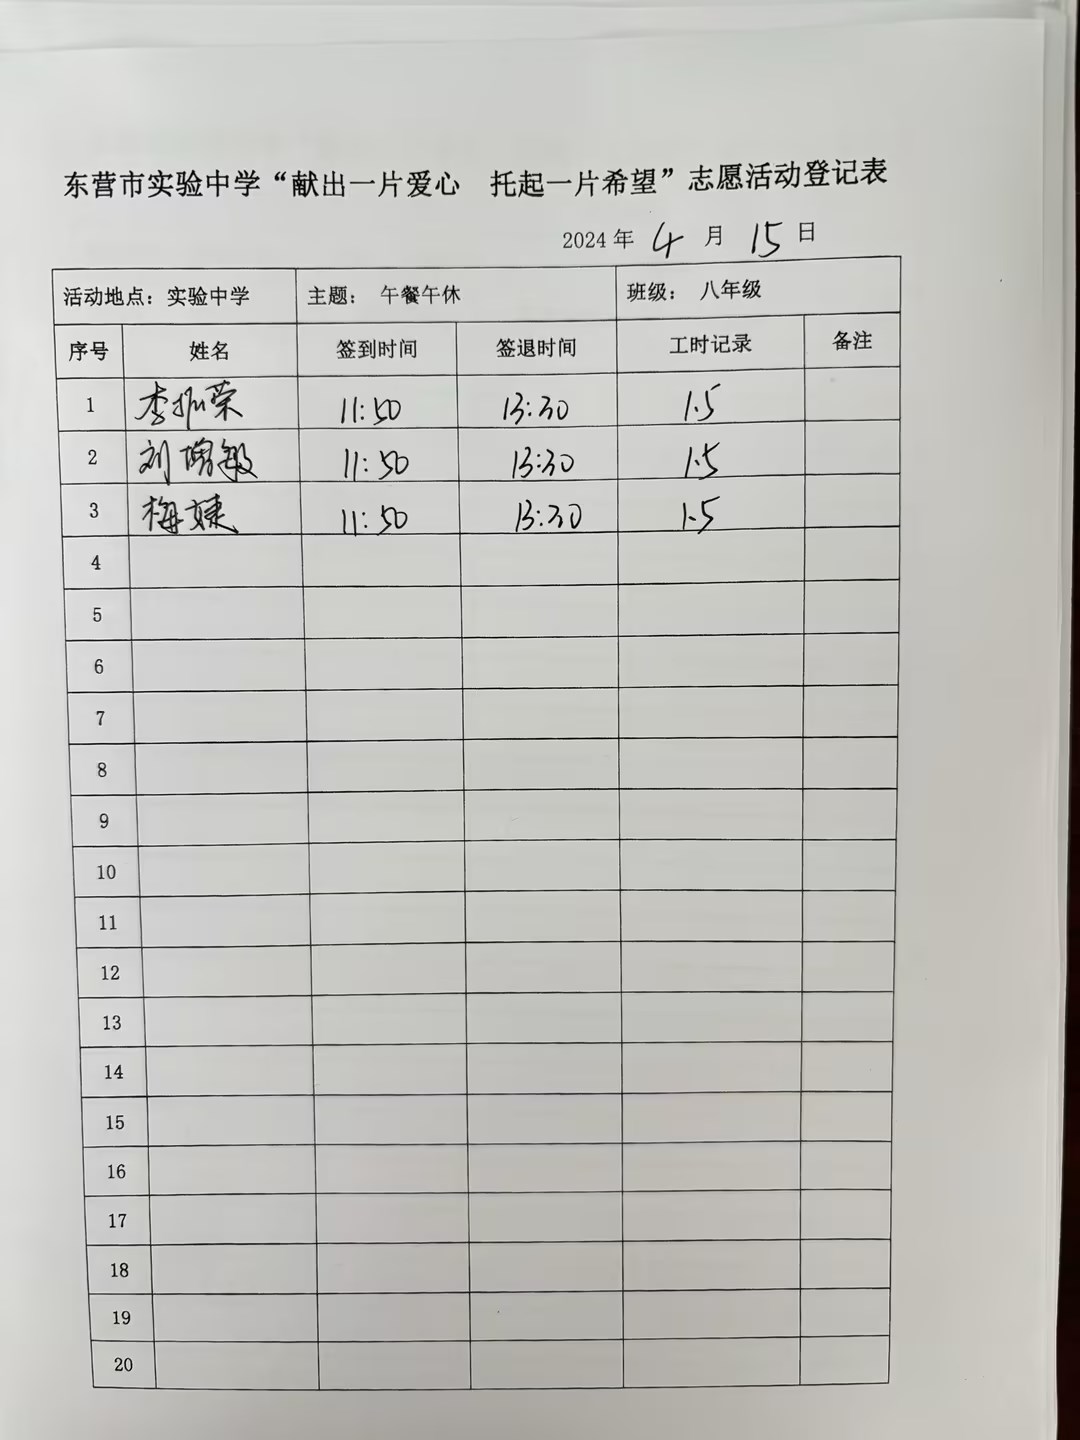 东营市实验中学“献出一片爱心 托起一片希望”志愿活动登记表
2024年 4 月 15 日
活动地点：实验中学 主题： 午餐午休 班级： 八年级
序号 姓名 签到时间 签退时间 工时记录 备注
1 李振荣 11:50 13:30 1.5
2 刘增敏 11:50 13:30 1.5
3 梅婕 11:50 13:30 1.5
4
5
6
7
8
9
10
11
12
13
14
15
16
17
18
19
20